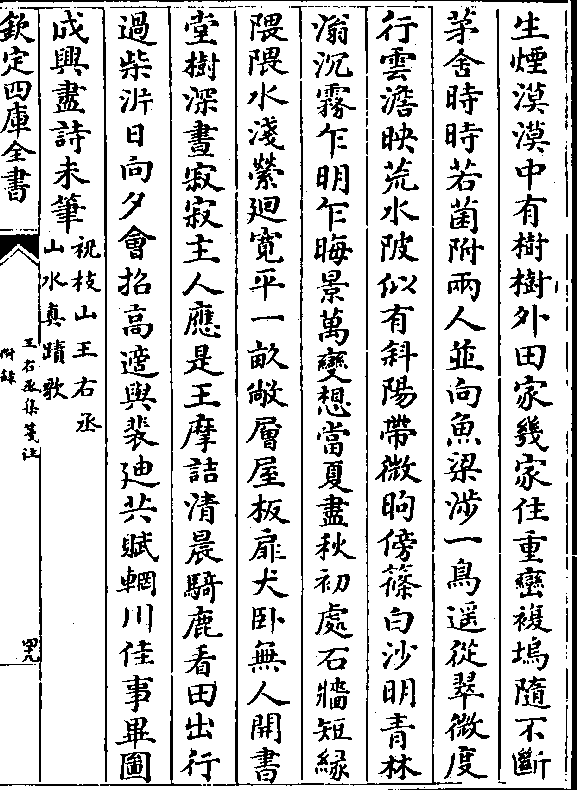 生煙漠漠中有樹樹外田家幾家住重巒複塢隨不斷
茅舍時時若菌附兩人並向魚梁涉一鳥遥從翠微度
行雲澹映荒水陂似有斜陽帶微昫傍篠白沙明青林
滃沉霧乍明乍晦景萬變想當夏盡秋初處石牆短緣
隈隈水淺縈廻寛平一畝敞層屋板扉犬卧無人開書
堂樹深晝寂寂主人應是王摩詰清晨騎鹿看田出行
過柴泝日向夕會招高適與裴廸共賦輞川佳事畢圖
成興盡詩未筆
祝枝山王右丞
山水真蹟歌
欽定四庫全書
王右丞集箋注
附録
四九